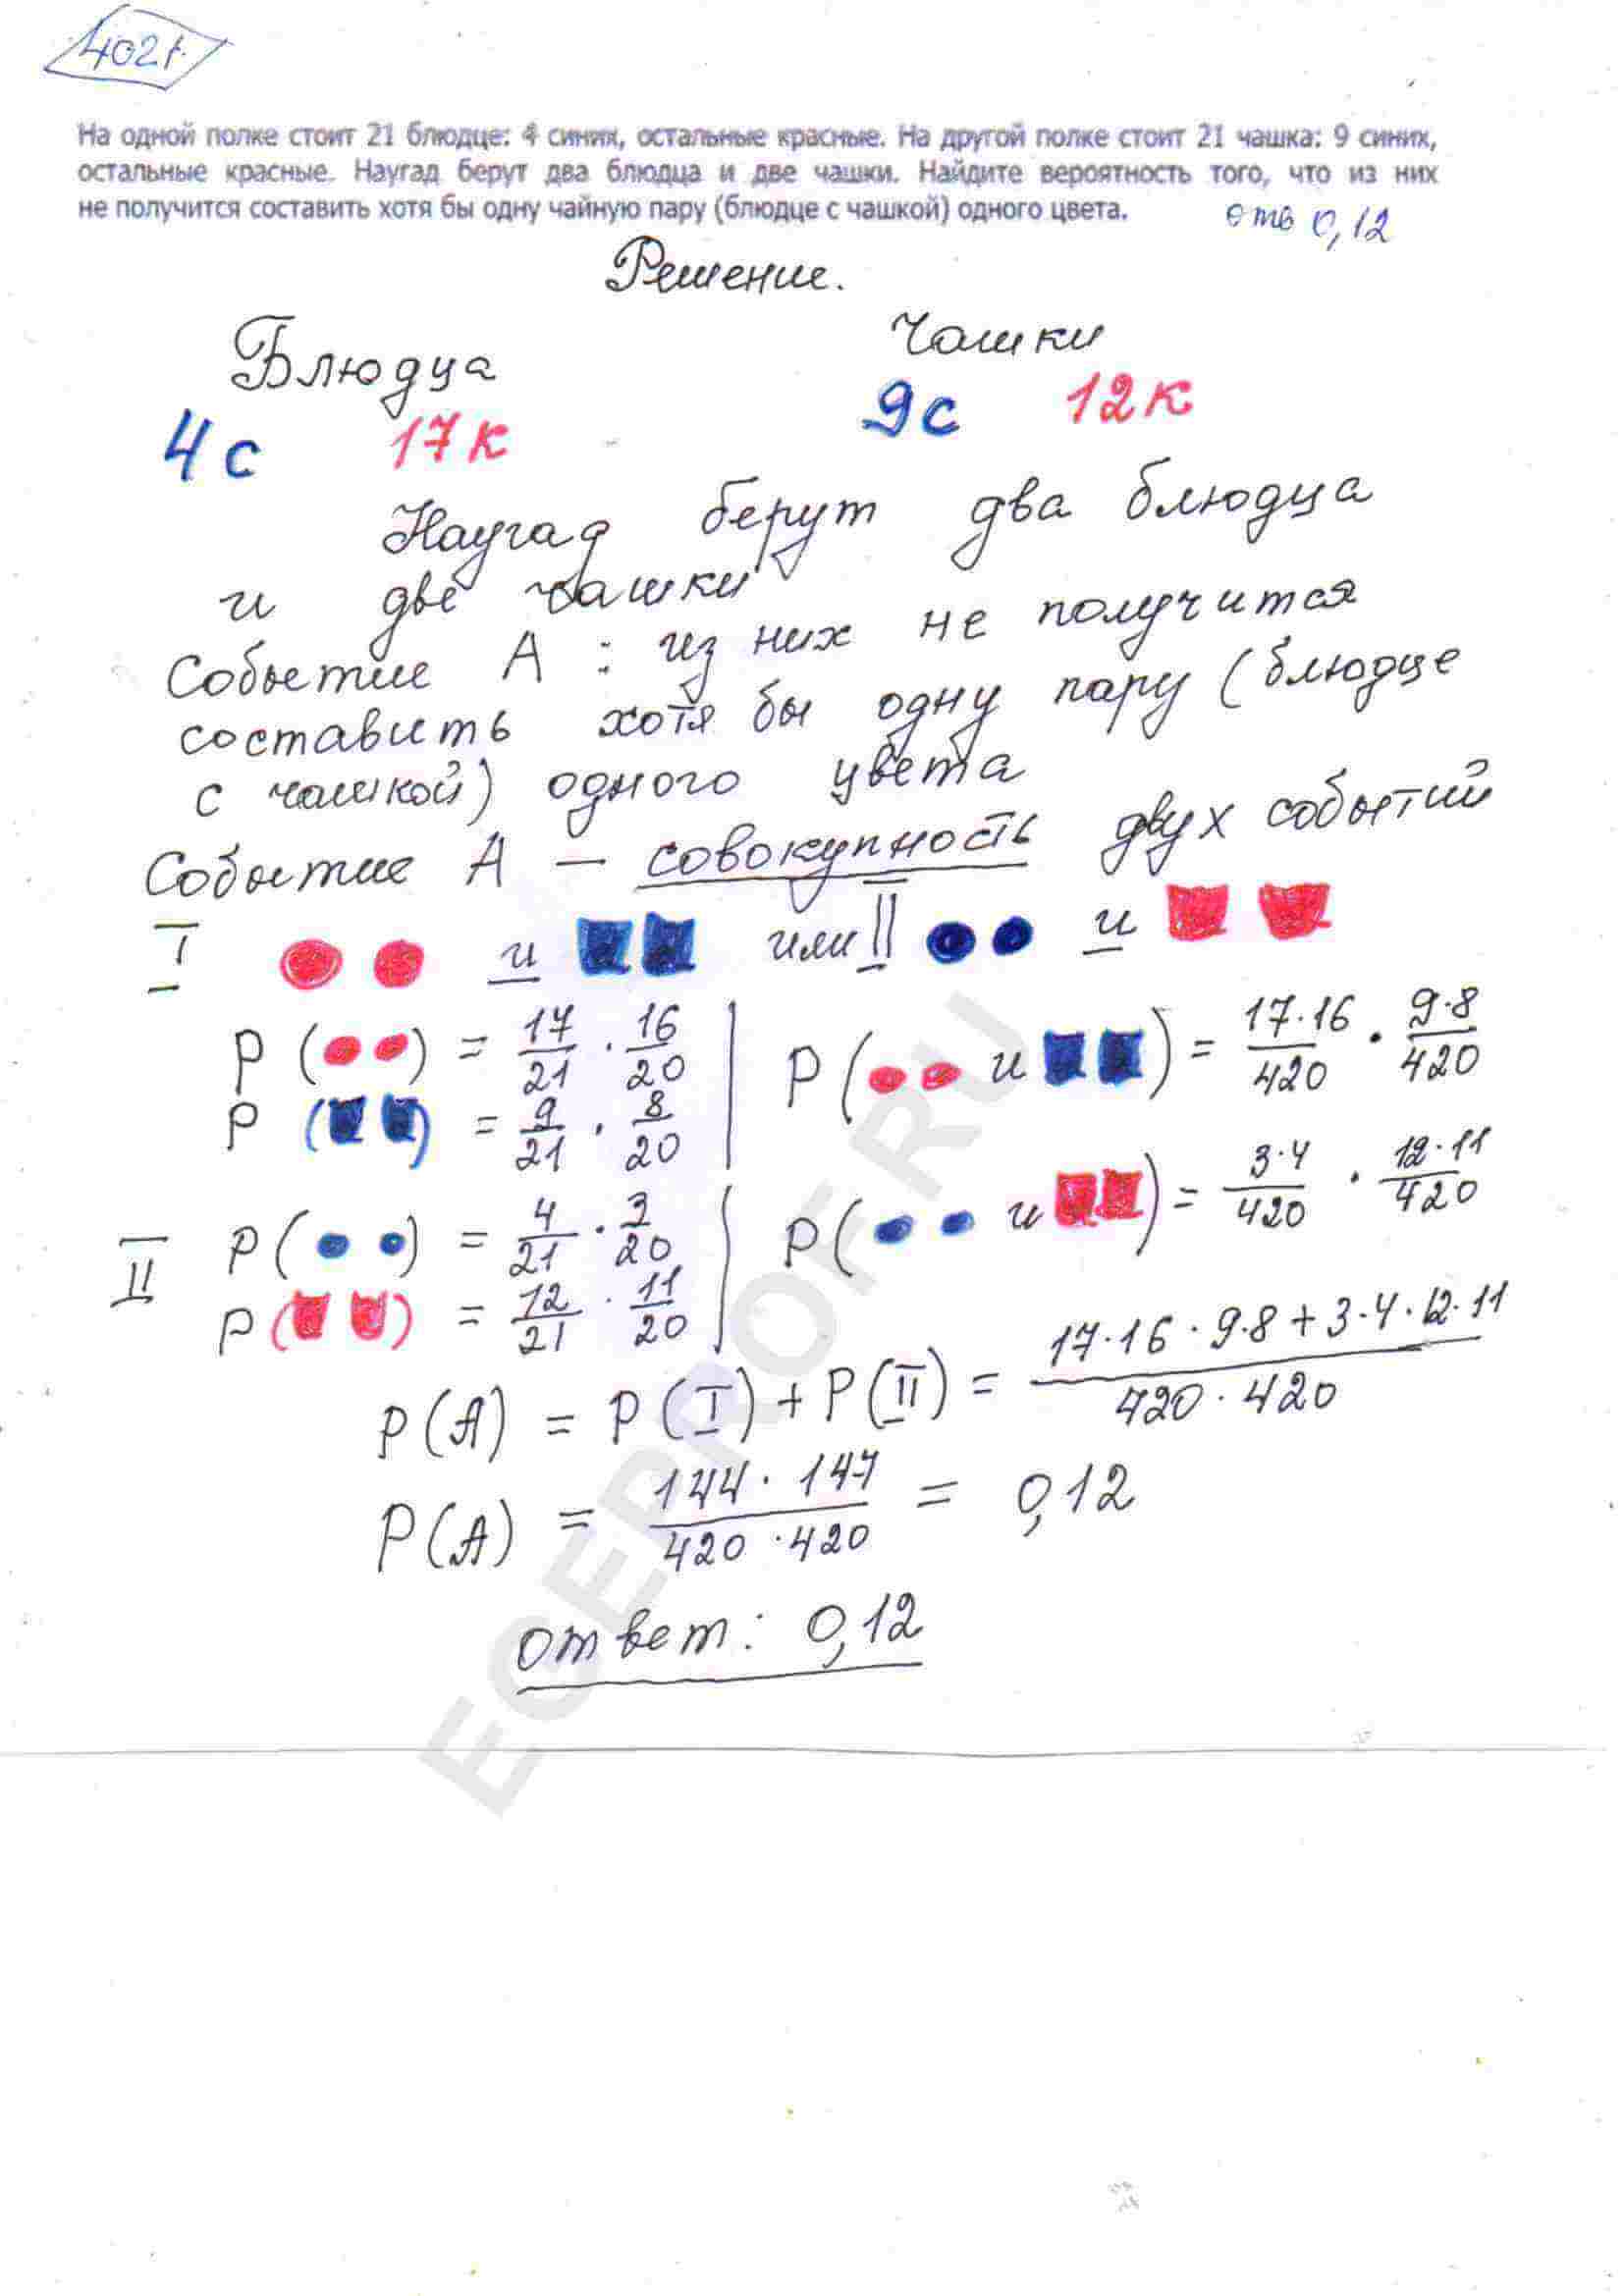 402т.
На одной полке стоит 21 блюдце: 4 синих, остальные красные. На другой полке стоит 21 чашка: 9 синих,
остальные красные. Наугад берут два блюдца и две чашки. Найдите вероятность того, что из них
не получится составить хотя бы одну чайную пару (блюдце с чашкой) одного цвета.
отв 0,12
Решение.
Блюдца Чашки
4с 17к 9с 12к
Наугад берут два блюдца
и две чашки
Событие А : из них не получится
составить хотя бы одну пару (блюдце
с чашкой) одного цвета
Событие А — совокупность двух событий
I и или II и
P ( ) = 17/21 · 16/20 | P ( и ) = 17·16/420 · 9·8/420
P ( ) = 9/21 · 8/20
II P ( ) = 4/21 · 3/20 | P ( и ) = 3·4/420 · 12·11/420
P ( ) = 12/21 · 11/20
P(A) = P(I) + P(II) = 17·16·9·8+3·4·12·11/420·420
P(A) = 144·147/420·420 = 0,12
ответ: 0,12
EGEPROF.RU